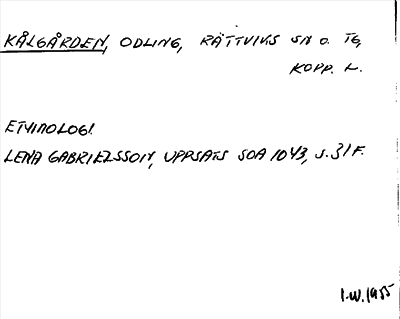 KÅLGÅRDEN, ODLING, RÄTTVIKS SN O. TG,
KOPP. L.
ETYMOLOGI.
LENA GABRIELSSON, UPPSATS SOA 1043, S. 31 F.
I.W. 1955